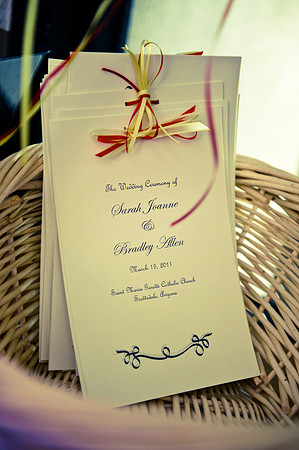 The Wedding Ceremony of
Sarah Joanne
&
Bradley Allen
March 19, 2011
Saint Maria Goretti Catholic Church
Scottsdale, Arizona